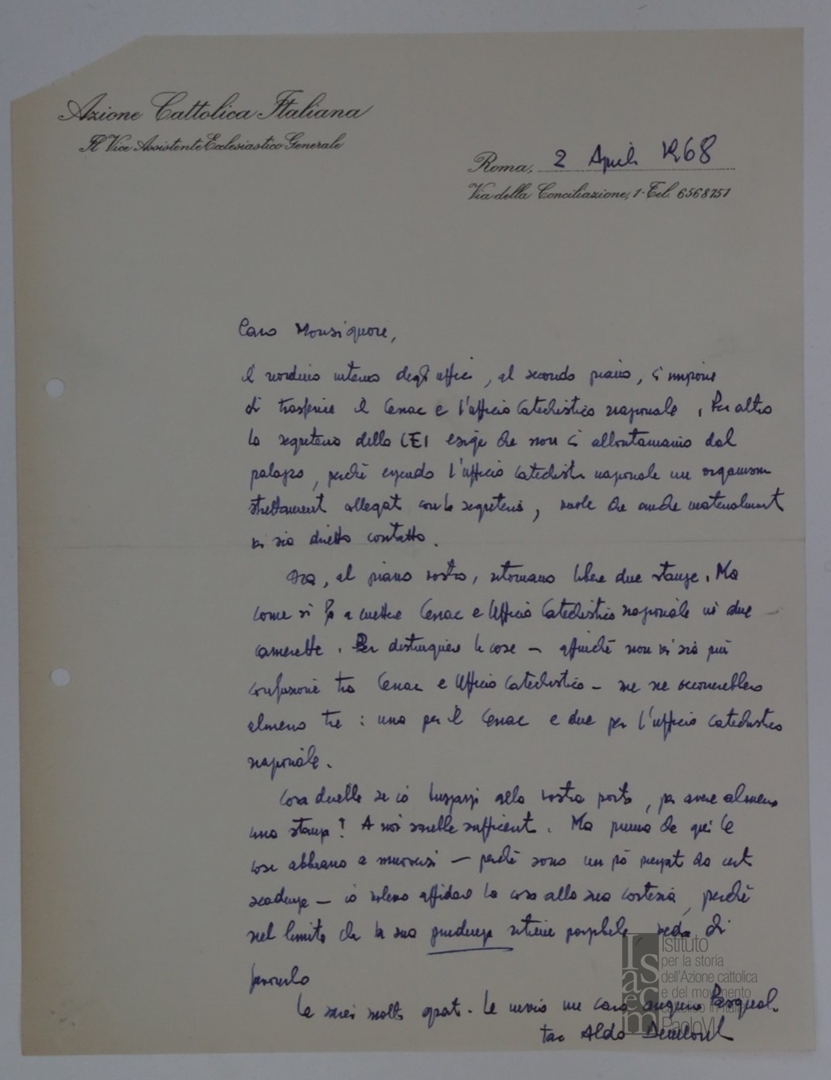 Azione Cattolica Italiana
Il Vice Assistente Ecclesiastico Generale
Roma, 2 Aprile 1968
Via della Conciliazione, 1 - Tel. 6568751
Caro Monsignore,
il riordino interno degli uffici, al secondo piano, ci impone
di trasferire il Cenac e l'ufficio Catechistico nazionale. Per altro
la segreteria della CEI esige che non ci allontaniamo dal
palazzo, perchè essendo l'ufficio catechistico nazionale un organismo
strettamente allegato con la segreteria, vuole che anche materialmente
vi sia diretto contatto.
Ora, al piano vostro, ritornano libere due stanze. Ma
come si fa a mettere Cenac e Ufficio Catechistico nazionale in due
camerette. Per distinguere le cose - affinchè non vi sia più
confusione tra Cenac e Ufficio Catechistico - me ne occorrerebbero
almeno tre: una per il Cenac e due per l'ufficio catechistico
nazionale.
Cosa direbbe se io bussassi alla vostra porta, per avere almeno
una stanza? A noi sarebbe sufficiente. Ma prima che qui le
cose abbiano a muoversi - perchè sono un pò pressato da certe
scadenze - io volevo affidare la cosa alla sua cortesia, perchè
nel limite che la sua prudenza ritiene possibile, veda di
favorirlo
Le sarei molto grato. Le invio un caro augurio Pasquale
suo Aldo
Isacem
Istituto
per la storia
dell'Azione cattolica
e del movimento
cattolico in Italia
Paolo VI